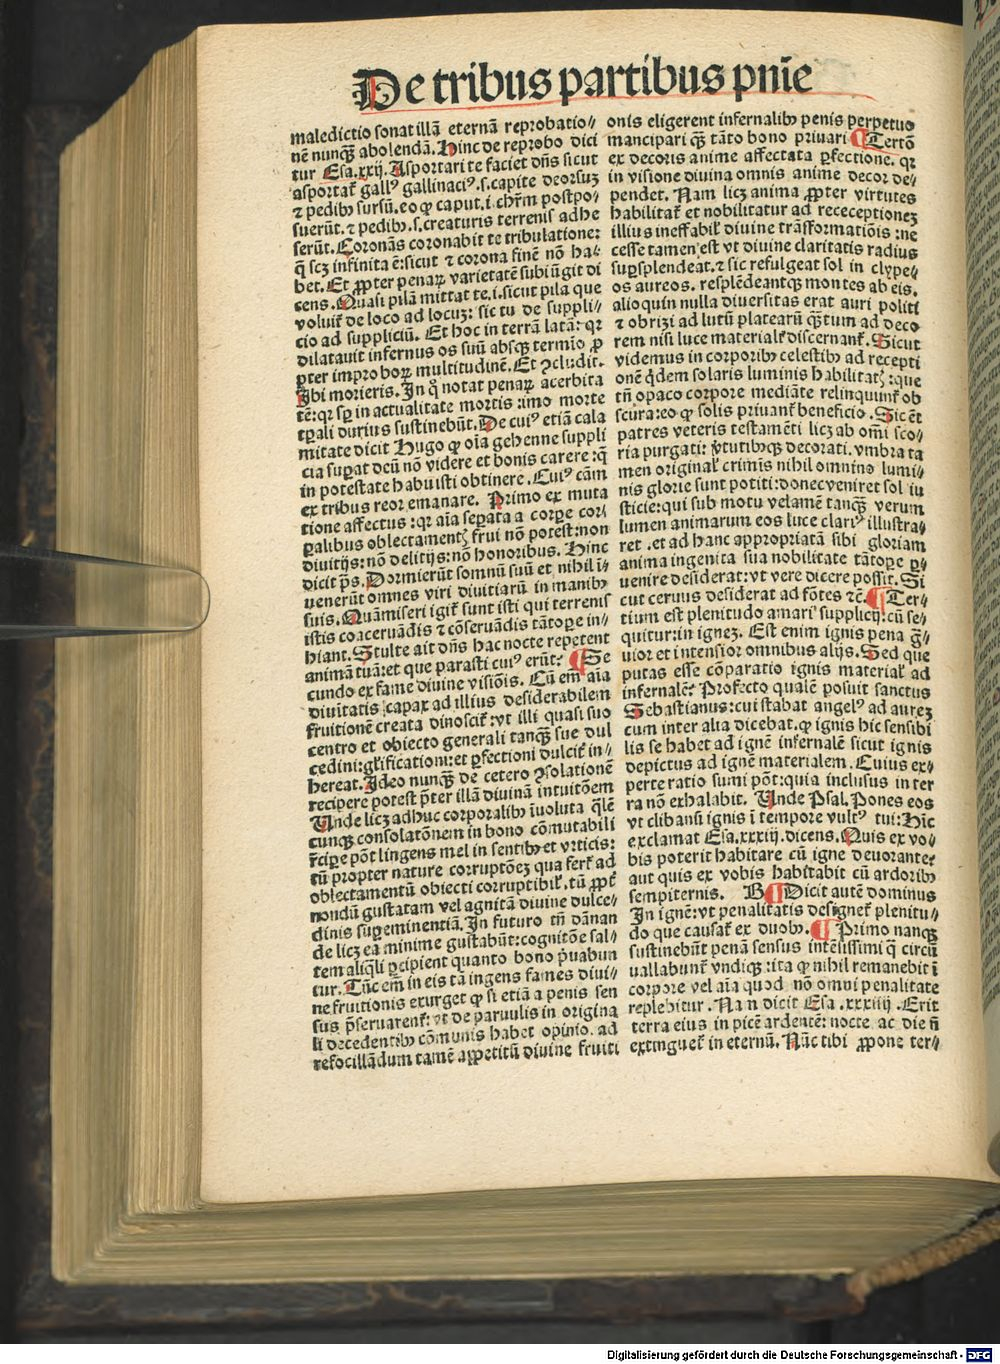 De tribus partibus pnīe
maledictio sonat illā eternā reprobatio⸗
nē nunqꝫ abolendā. Hinc de reprobo dici
tur Esa.xxij. Asportari te faciet dn̄s sicut
asportat̄ gallꝰ gallinaciꝰ.s.capite deorsuꝫ
⁊ pedibꝰ sursū.eo ꝙ caput.i.chr̄m postpo⸗
suerūt.⁊ pedibꝰ.s.creaturis terrenis adhe
serūt. Coronās coronabit te tribulatione:
q̄ scꝫ infinita ē:sicut ⁊ corona finē nō ha⸗
bet. Et ꝓpter penaꝝ varietatē subiūgit di
cens. Quasi pilā mittat te.i.sicut pila que
voluit̄ de loco ad locuꝫ: sic tu de suppli⸗
cio ad suppliciū. Et hoc in terrā latā: qꝛ
dilatauit infernus os suū absqꝫ termīo ꝓ
pter improboꝝ multitudinē. Et ꝯcludit.
Ibi morieris. In q̊ notat penaꝝ acerbita
tē: qꝛ sꝑ in actualitate mortis: imo morte
tꝑali durius sustinebūt. De cuiꝰ etiā cala
mitate dicit Hugo ꝙ oīa gehenne suppli
cia suꝑat deū nō videre et bonis carere: q̄
in potestate habuisti obtinere. Cuiꝰ cām
ex tribus reor emanare. Primo ex muta
tione affectus: qꝛ aīa seꝑata a corꝑe cor⸗
ꝑalibus oblectamentꝫ frui nō potest: non
diuitijs: nō delitijs: nō honoribus. Hinc
dicit ps̄. Dormierūt somnū suū et nihil i⸗
uenerūt omnes viri diuitiarū in manibꝰ
suis. Quā miseri igit̄ sunt isti qui terrenis
istis coaceruādis ⁊ cōseruādis tātoꝑe in⸗
hiant. Stulte ait dn̄s hac nocte repetent
animā tuā: et que parasti cuiꝰ erūt? ¶ Se
cundo ex fame diuine visiōis. Cū em̄ aīa
diuītatis capax ad illius desiderabilem
fruitionē creata dinoscit̄: vt illi quasi suo
centro et obiecto generali tanqꝫ sue dul
cedini: gl̄ificationi: et ꝑfectioni dulcit̄ in⸗
hereat. Ideo nunqꝫ de cetero ꝯsolationē
recipere potest p̄ter illā diuinā intuitōem
Unde licꝫ adhuc corporalibꝰ īuoluta ql̄ē
cunqꝫ consolatōnem in bono cōmutabili
r̄ciꝑe pōt lingens mel in sentibꝰ et vrticis:
tū propter nature corruptōeꝫ qua fert̄ ad
oblectamentū obiecti corruptibil̄. tū ꝓpt̄
nondū gustatam vel agnitā diuine dulce⸗
dinis suꝑeminentiā. In futuro tn̄ dānan
de licꝫ ea minime gustabūt: cognitōe sal⸗
tem aliq̄li ꝑcipient quanto bono p̄uabun
tur. Tūc em̄ in eis tā ingens fames diui⸗
ne fruitionis exurget ꝙ si etiā a penis sen
sus p̄seruarent̄: vt de paruulis in origina
li decedentibꝰ cōmunis habet opinio. ad
refocillādum tamē appetitū diuine fruiti
onis eligerent infernalibꝰ penis perpetuo
mancipari qꝫ tāto bono priuari ¶ Tertō
ex decoris anime affectata ꝑfectione. qꝛ
in visione diuina omnis anime decor de⸗
pendet. Nam licꝫ anima ꝓpter virtutes
habilitat̄ et nobilitatur ad receceptioneꝫ
illius ineffabil̄ diuine trāsformatiōis: ne
cesse tamen est vt diuine claritatis radius
suꝑsplendeat.⁊ sic refulgeat sol in clype⸗
os aureos. resplēdeantqꝫ montes ab eis.
alioquin nulla diuersitas erat auri politi
⁊ obrizi ad lutū platearū qꝫtum ad deco
rem nisi luce material̄ discernant̄. Sicut
videmus in corporibꝰ celestibꝰ ad recepti
onē q̄dem solaris luminis habilitatꝫ: que
tn̄ opaco corpore mediāte relinquunt̄ ob
scura: eo ꝙ solis priuant̄ beneficio. Sic ēt
patres veteris testamēti licꝫ ab om̄i sco⸗
ria purgati: v̄tutibꝰqꝫ decorati. vmbra ta
men original̄ crimīs nihil omnino lumi⸗
nis glorie sunt potiti: donec veniret sol iu
sticie: qui sub motu velamē tanqꝫ verum
lumen animarum eos luce clariꝰ illustra⸗
ret. et ad hanc appropriatā sibi gloriam
anima ingenita sua nobilitate tātoꝑe ꝑ⸗
uenire desiderat: vt vere dicere possit. Si
cut ceruus desiderat ad fōtes ⁊c̄. ¶ Ter⸗
tium est plenitudo amari supplicij: cū se⸗
quitur: in igneꝫ. Est enim ignis pena gᷓ⸗
uior et intensior omnibus alijs. Sed que
putas esse cōparatio ignis material̄ ad
infernalē? Profecto qualē posuit sanctus
Sebastianus: cui stabat angelꝰ ad aureꝫ
cum inter alia dicebat. ꝙ ignis hic sensibi
lis se habet ad ignē infernalē sicut ignis
depictus ad ignē materialem. Cuius ex⸗
perte ratio sumi pōt: quia inclusus in ter
ra nō exhalabit. Unde Psal. Pones eos
vt clibanū ignis ī tempore vultꝰ tui: Hīc
exclamat Esa.xxxiij.dicens. Quis ex vo⸗
bis poterit habitare cū igne deuorante?
aut quis ex vobis habitabit cū ardoribꝰ
sempiternis. B ¶ Dicit autē dominus
In ignē: vt penalitatis designet̄ plenitu⸗
do que causat̄ ex duobꝰ. ¶ Primo nanqꝫ
sustinebūt penā sensus intēsissimī q̄ circū
uallabunt̄ vndiqꝫ: ita ꝙ nihil remanebit ī
corpore vel aīa quod nō omni penalitate
replebitur. Nan dicit Esa.xxxiiij. Erit
terra eius in picē ardentē: nocte ac die n̄
extinguet̄ in eternū. Nūc tibi ꝓpone ter⸗
Digitalisierung gefördert durch die Deutsche Forschungsgemeinschaft - DFG